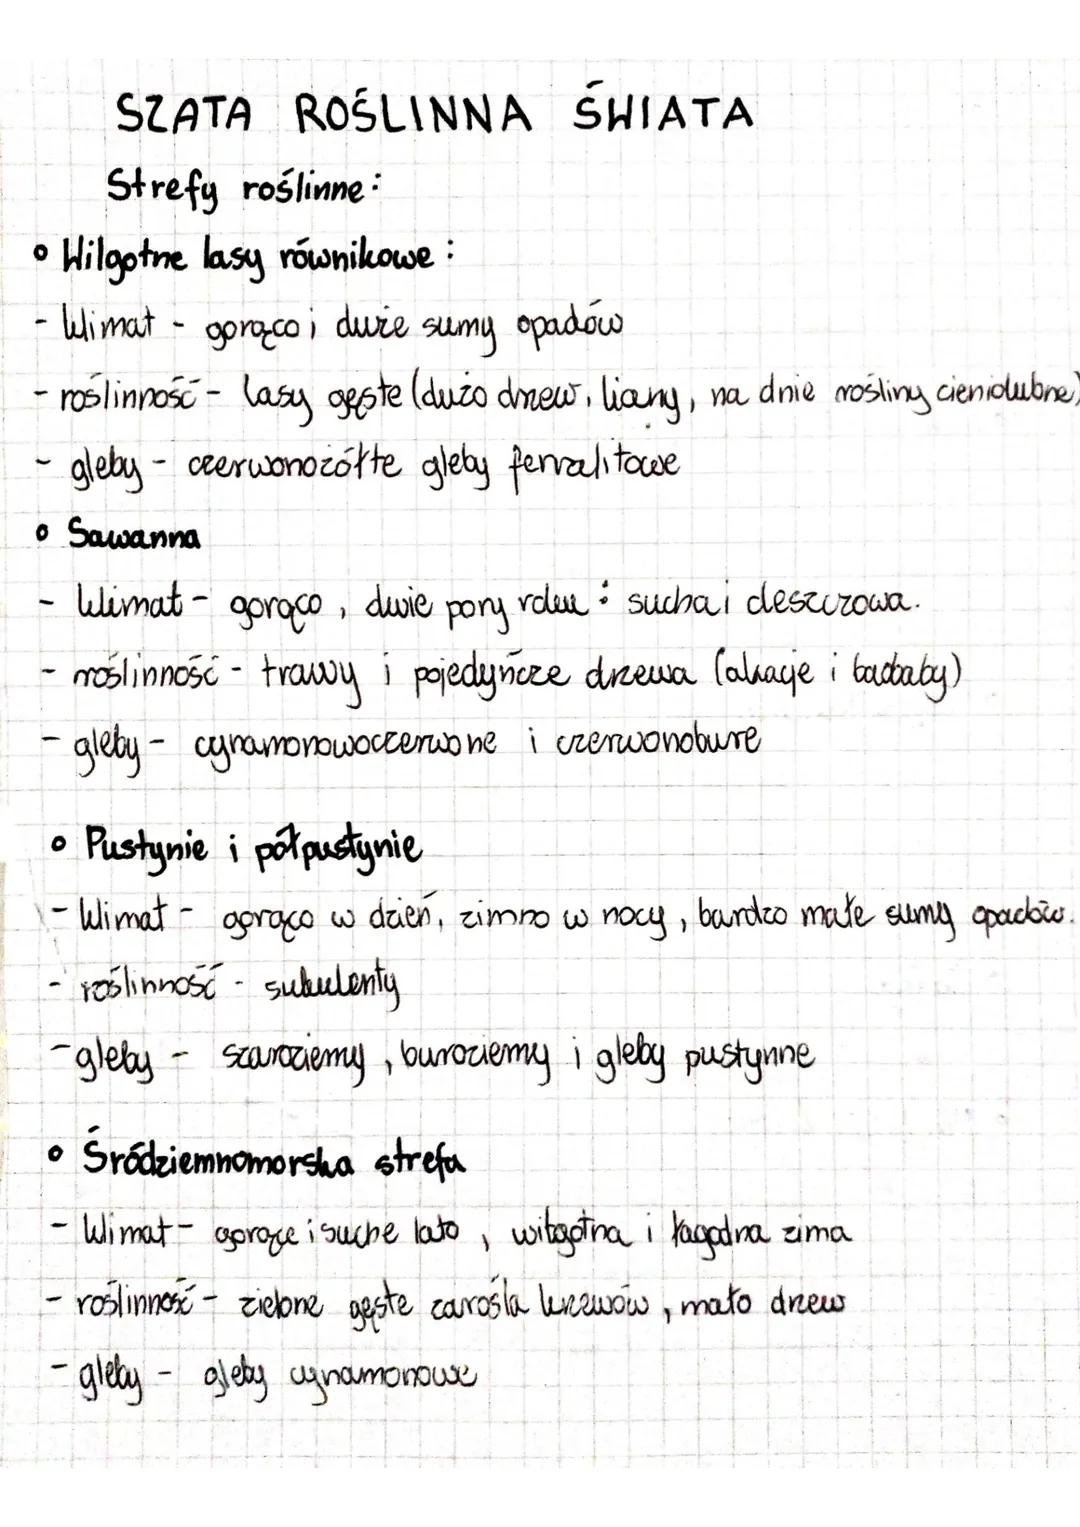 SZATA ROŚLINNA ŚWIATA
Strefy roślinne:
• Wilgotne lasy równikowe:
- klimat - gorąco i duże sumy opadów
- roślinność - lasy gęste (dużo drzew, liany, na dnie rośliny cieniolubne)
- gleby - czerwonożółte gleby ferralitowe
• Sawanna
- klimat - gorąco, dwie pory roku: sucha i deszczowa.
- roślinność - trawy i pojedyńcze drzewa (akacje i baobaby)
- gleby - cynamonowoczerwone i czerwonobure
• Pustynie i półpustynie
- klimat - gorąco w dzień, zimno w nocy, bardzo małe sumy opadów.
- roślinność - sukulenty
- gleby - szaroziemy, buroziemy i gleby pustynne
• Śródziemnomorska strefa
- klimat - gorące i suche lato, wilgotna i łagodna zima
- roślinność - zielone gęste zarośla krzewów, mało drzew
- gleby - gleby cynamonowe